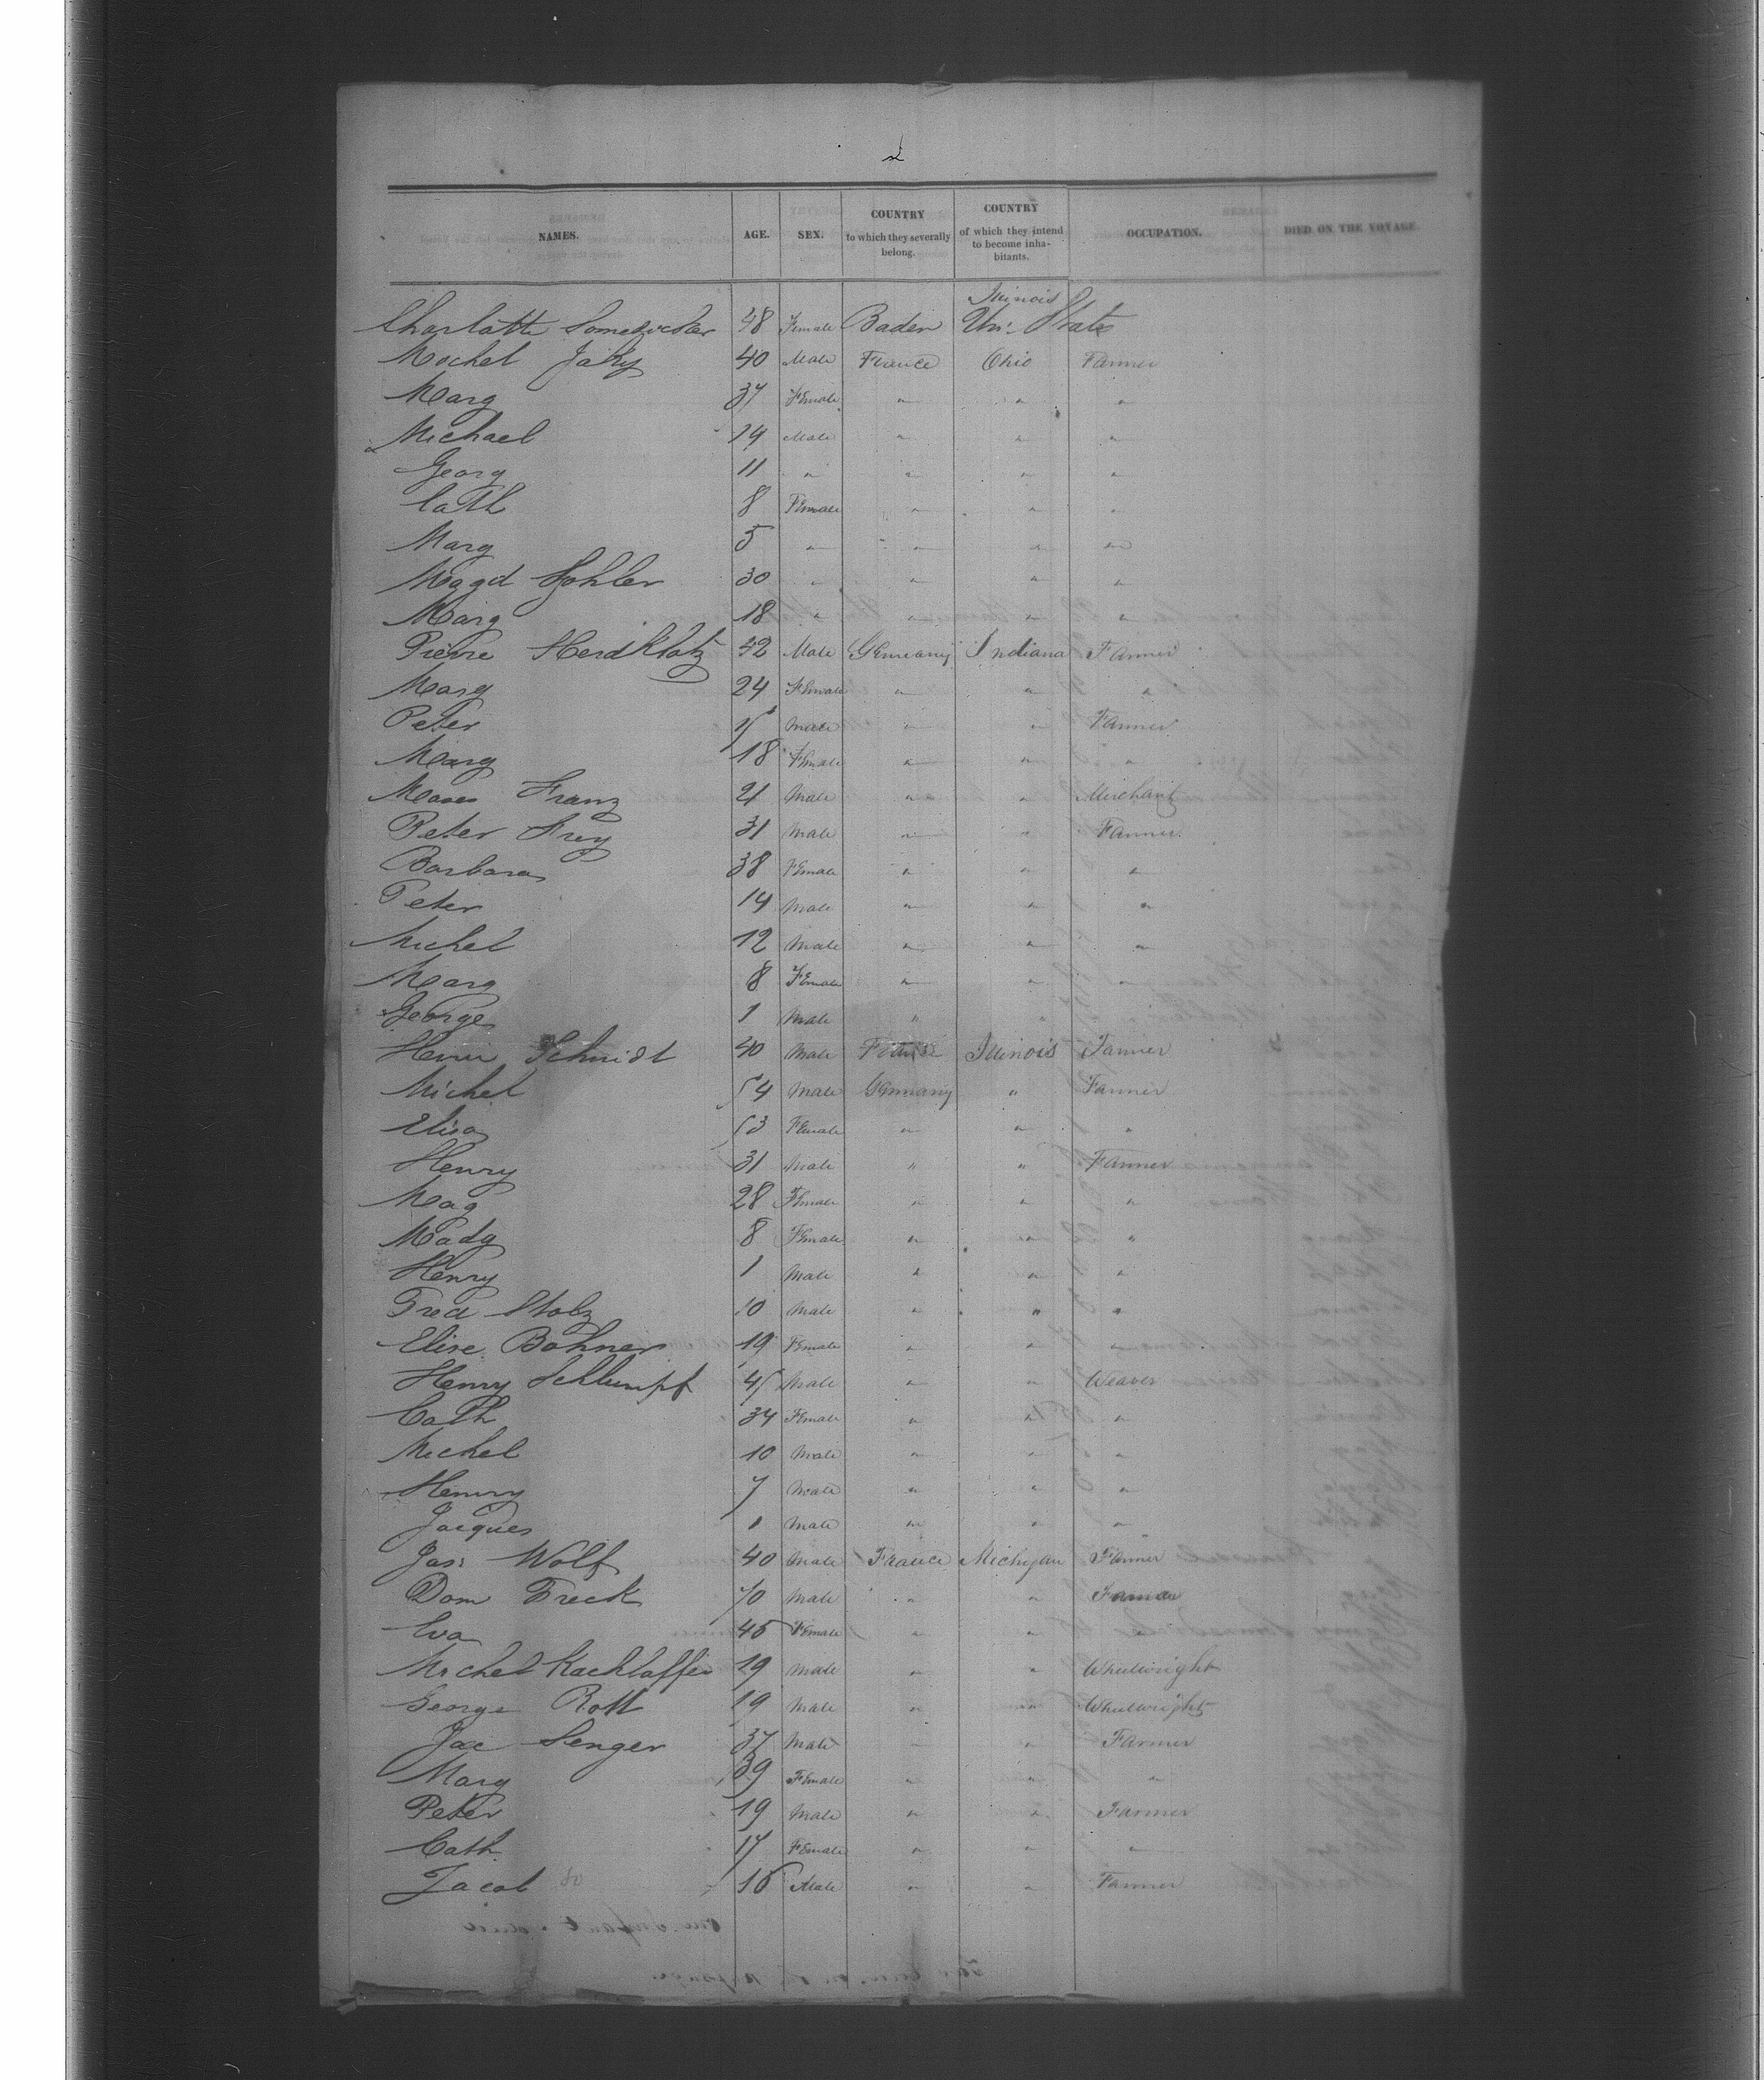 2
NAMES. AGE. SEX. COUNTRY to which they severally belong. COUNTRY of which they intend to become inhabitants. OCCUPATION. DIED ON THE VOYAGE.
Illinois
Charlotte 48 Female Baden Un: States
Mochel Jaky 40 Male France Ohio Farmer
Marg 37 Female " " "
Michael 14 Male " " "
Georg 11 " " " "
Cath 8 Female " " "
Marg 5 " " " "
Magd Gohler 30 " " " "
Marg 18 " " " "
Pierre Herdklotz 42 Male Germany Indiana Farmer
Marg 24 Female " " "
Peter Male " " Farmer
Marg 18 Female " " "
Moses Franz 21 Male " " Merchant
Peter Frey 31 Male " " Farmer
Barbara 38 Female " " "
Peter 14 Male " " "
Michel 12 Male " " "
Marg 8 Female " " "
George 1 Male " "
Henri Schmidt 40 Male Illinois Farmer
Michel 54 Male Germany " Farmer
Elisa 53 Female " " "
Henry 31 Male " " Farmer
Mag 28 Female " " "
Mady 8 Female " " "
Henry 1 Male " " "
Fred Stolz 10 Male " " "
Elise Bohner 19 Female " " "
Henry Schlumpf 45 Male " " Weaver
Cath 34 Female " " "
Michel 10 Male " " "
Henry 7 Male " " "
Jacques 1 Male " " "
Jas: Wolf 40 Male France Michigan Farmer
Dom Freck 70 Male " " Farmer
Eva 45 Female " " "
Michel Kachlaffer 19 Male " " Wheelwright
George Rott 19 Male " " Wheelwright
Jac Senger 37 Male " " Farmer
Marg 39 Female " " "
Peter 19 Male " " Farmer
Cath 17 Female " " "
Jacob 16 Male " " Farmer